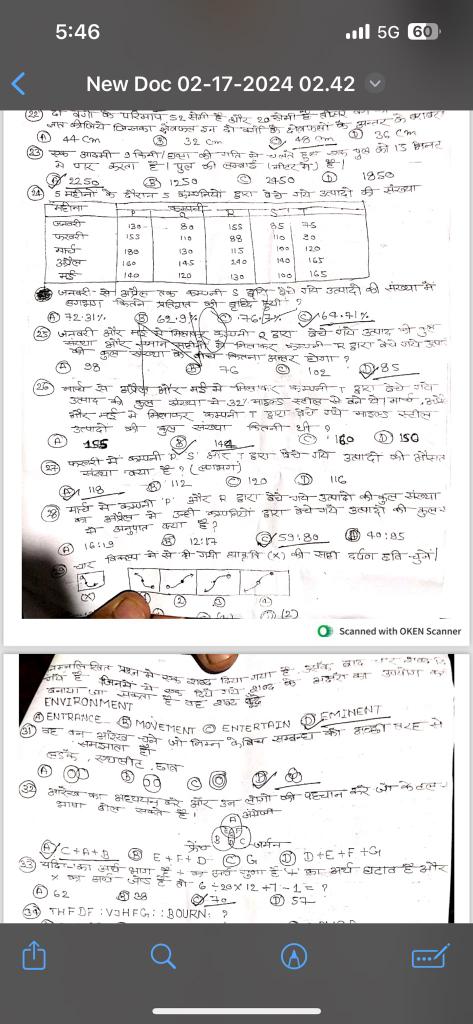 5:46
5G 60
New Doc 02-17-2024 02.42
22) दो वर्गों के परिमाप 52 सेमी है और 20 सेमी है
Ⓐ 44 cm Ⓑ 32 cm Ⓒ 48 cm Ⓓ 36 cm
23 एक आदमी 9 किमी/घण्टा की गति से चलते हुए एक पुल को 15 मिनट
में पार करता है। पुल की लम्बाई (मीटर में) है।
Ⓐ 2250 Ⓑ 1250 Ⓒ 2450 Ⓓ 1850
24 5 महीनों के दौरान 5 कम्पनियों द्वारा बेचे गये उत्पादों की संख्या
महीना कम्पनी
P Q R S T
जनवरी 130 80 155 85 75
फरवरी 155 110 88 110 80
मार्च 180 130 115 100 120
अप्रैल 160 145 240 140 165
मई 140 120 130 100 165
जनवरी से अप्रैल तक कम्पनी S द्वारा बेचे गये उत्पादों की संख्या में
लगभग कितने प्रतिशत की वृद्धि हुयी ?
Ⓐ 72.31% Ⓑ 69.9% Ⓒ 76.7% Ⓓ 64.71%
25) जनवरी और मई में मिलाकर कम्पनी Q द्वारा बेचे गये उत्पाद की कुल
संख्या और समान महीनों में मिलाकर कम्पनी R द्वारा बेचे गये उत्पाद
की कुल संख्या के बीच कितना अन्तर होगा ?
Ⓐ 98 Ⓑ 76 Ⓒ 102 Ⓓ 85
26) मार्च में अप्रैल और मई में मिलाकर कम्पनी T द्वारा बेचे गये
उत्पाद की कुल संख्या में 32 माइल्ड स्टील के बने थे। मार्च, अप्रैल
और मई में मिलाकर कम्पनी T द्वारा बेचे गये माइल्ड स्टील
उत्पादों की कुल संख्या कितनी थी ?
Ⓐ 155 Ⓑ 144 Ⓒ 160 Ⓓ 150
27) फरवरी में कम्पनी P S और T द्वारा बेचे गये उत्पादों की औसत
संख्या क्या है ? (लगभग)
Ⓐ 118 Ⓑ 112 Ⓒ 120 Ⓓ 116
28) मार्च में कम्पनी 'P' और R द्वारा बेचे गये उत्पादों की कुल संख्या
का अप्रैल में उन्हीं कम्पनियों द्वारा बेचे गये उत्पादों की कुल
से अनुपात क्या है ?
Ⓐ 16:19 Ⓑ 12:17 Ⓒ 59:80 Ⓓ 40:85
चार विकल्प में से दी गयी आकृति (X) की सही दर्पण छवि चुनें।
(X) ① ② ③ ④
(2)
Scanned with OKEN Scanner
निम्नलिखित प्रश्न में एक शब्द दिया गया है, उसके बाद चार शब्द दिये
गये हैं जिनमें से एक दिये गये शब्द के अक्षरों का उपयोग कर
बनाया जा सकता है वह शब्द
ENVIRONMENT
Ⓐ ENTRANCE Ⓑ MOVEMENT Ⓒ ENTERTAIN Ⓓ EMINENT
31) वह वेन आरेख चुनें जो निम्न के बीच सम्बन्ध को अच्छी तरह से
समझाता है।
लड़के, एथलीट, छात्र
Ⓐ Ⓑ Ⓒ Ⓓ
32) आरेख का अध्ययन करें और उन लोगों की पहचान करें जो केवल
भाषा बोल सकते हैं।
A अंग्रेजी
B C
फ्रेंच जर्मन
Ⓐ C+A+B Ⓑ E+F+D Ⓒ G Ⓓ D+E+F+G
33) यदि - का अर्थ भाग है + का अर्थ गुणा है ÷ का अर्थ घटाव है और
x का अर्थ जोड़ है तो 6÷20×12+7-1=?
Ⓐ 62 Ⓑ 38 Ⓒ 70 Ⓓ 57
34) THFDF : VJHFG :: BOURN: ?